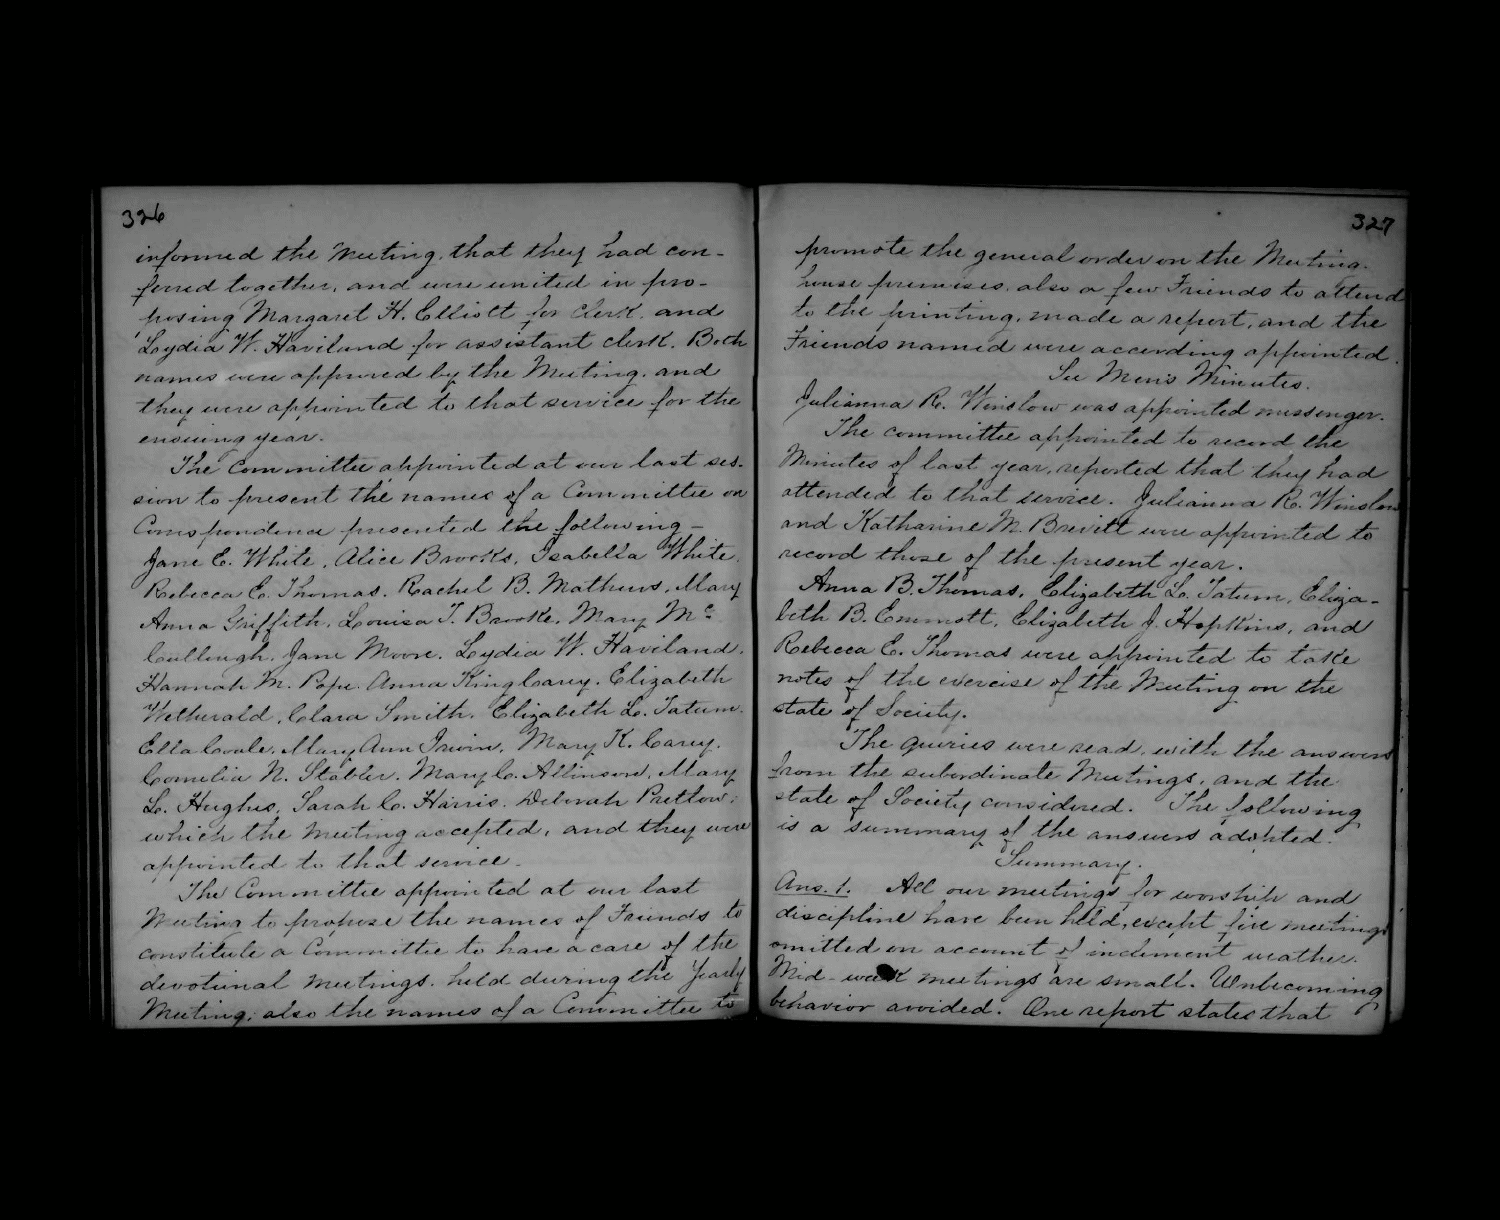 326
informed the Meeting, that they had con-
ferred together, and were united in pro-
posing Margaret H. Elliott for clerk, and
Lydia W. Haviland for assistant clerk. Both
names were approved by the Meeting, and
they were appointed to that service for the
ensuing year.
The Committee appointed at our last ses-
sion to present the names of a Committee on
Correspondence presented the following—
Jane E. White, Alice Brooks, Isabella White,
Rebecca E. Thomas, Rachel B. Mathews, Mary
Anna Griffith, Louisa T. Brooke, Mary Mc
Cullough, Jane Moore, Lydia W. Haviland,
Hannah M. Pope, Anna King Carey, Elizabeth
Wetherald, Clara Smith, Elizabeth L. Tatum,
Ella Coale, Mary Ann Irwin, Mary K. Carey,
Cornelia N. Stabler, Mary C. Allinson, Mary
L. Hughes, Sarah C. Harris, Deborah Pretlow;
which the Meeting accepted, and they were
appointed to that service.
The Committee appointed at our last
Meeting to propose the names of Friends to
constitute a Committee to have a care of the
devotional meetings, held during the Yearly
Meeting; also the names of a Committee to
327
promote the general order on the Meeting-
house premises, also a few Friends to attend
to the printing, made a report, and the
Friends named were according appointed.
See Men's Minutes.
Julianna R. Winslow was appointed messenger.
The committee appointed to record the
Minutes of last year, reported that they had
attended to that service. Julianna R. Winslow
and Katharine M. Brevitt were appointed to
record those of the present year.
Anna B. Thomas, Elizabeth L. Tatum, Eliza-
beth B. Emmott, Elizabeth J. Hopkins, and
Rebecca E. Thomas were appointed to take
notes of the exercise of the Meeting on the
state of Society.
The queries were read, with the answers
from the subordinate Meetings, and the
state of Society considered. The following
is a summary of the answers adopted.
Summary.
Ans. 1. All our meetings for worship and
discipline have been held, except five meetings
omitted on account of inclement weather.
Mid-week meetings are small. Unbecoming
behavior avoided. One report states that